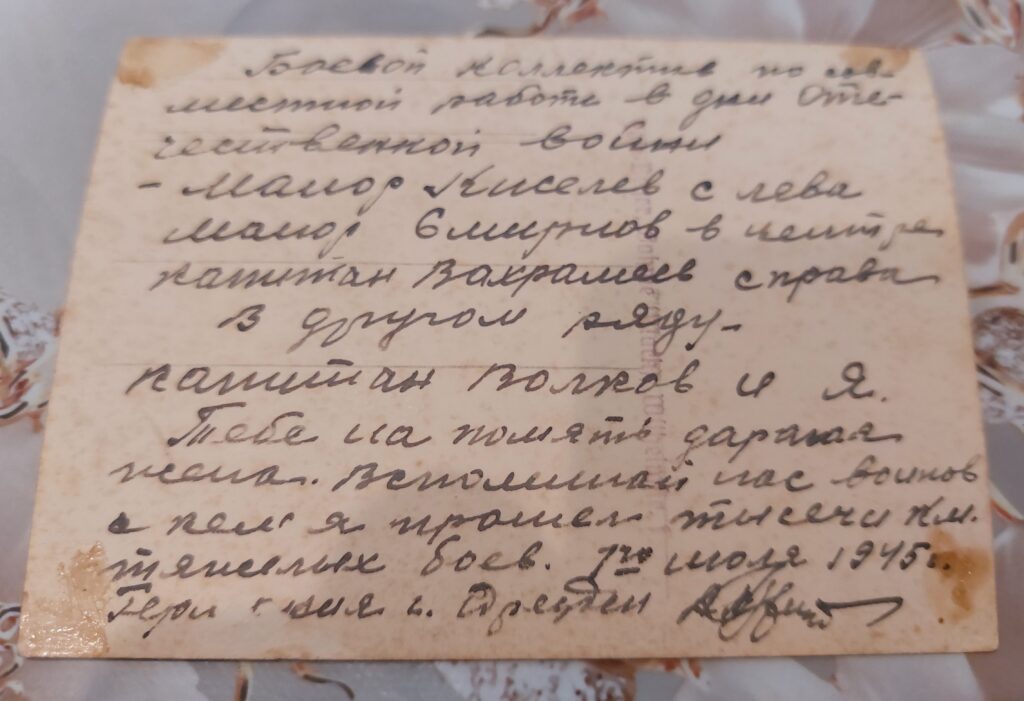 Боевой коллектив по сов
местной работе в дни Оте-
чественной войни
- Майор Киселев с лева
майор Смирнов в центре
капитан Вахрамеев справа
В другом ряду-
капитан Волков и Я.
Тебе на помять дарагая
жена. Вспоминай нас воинов
с кем я прошел тысечи км.
тяжелых боев. 1го июля 1945г.
г. Дрезден